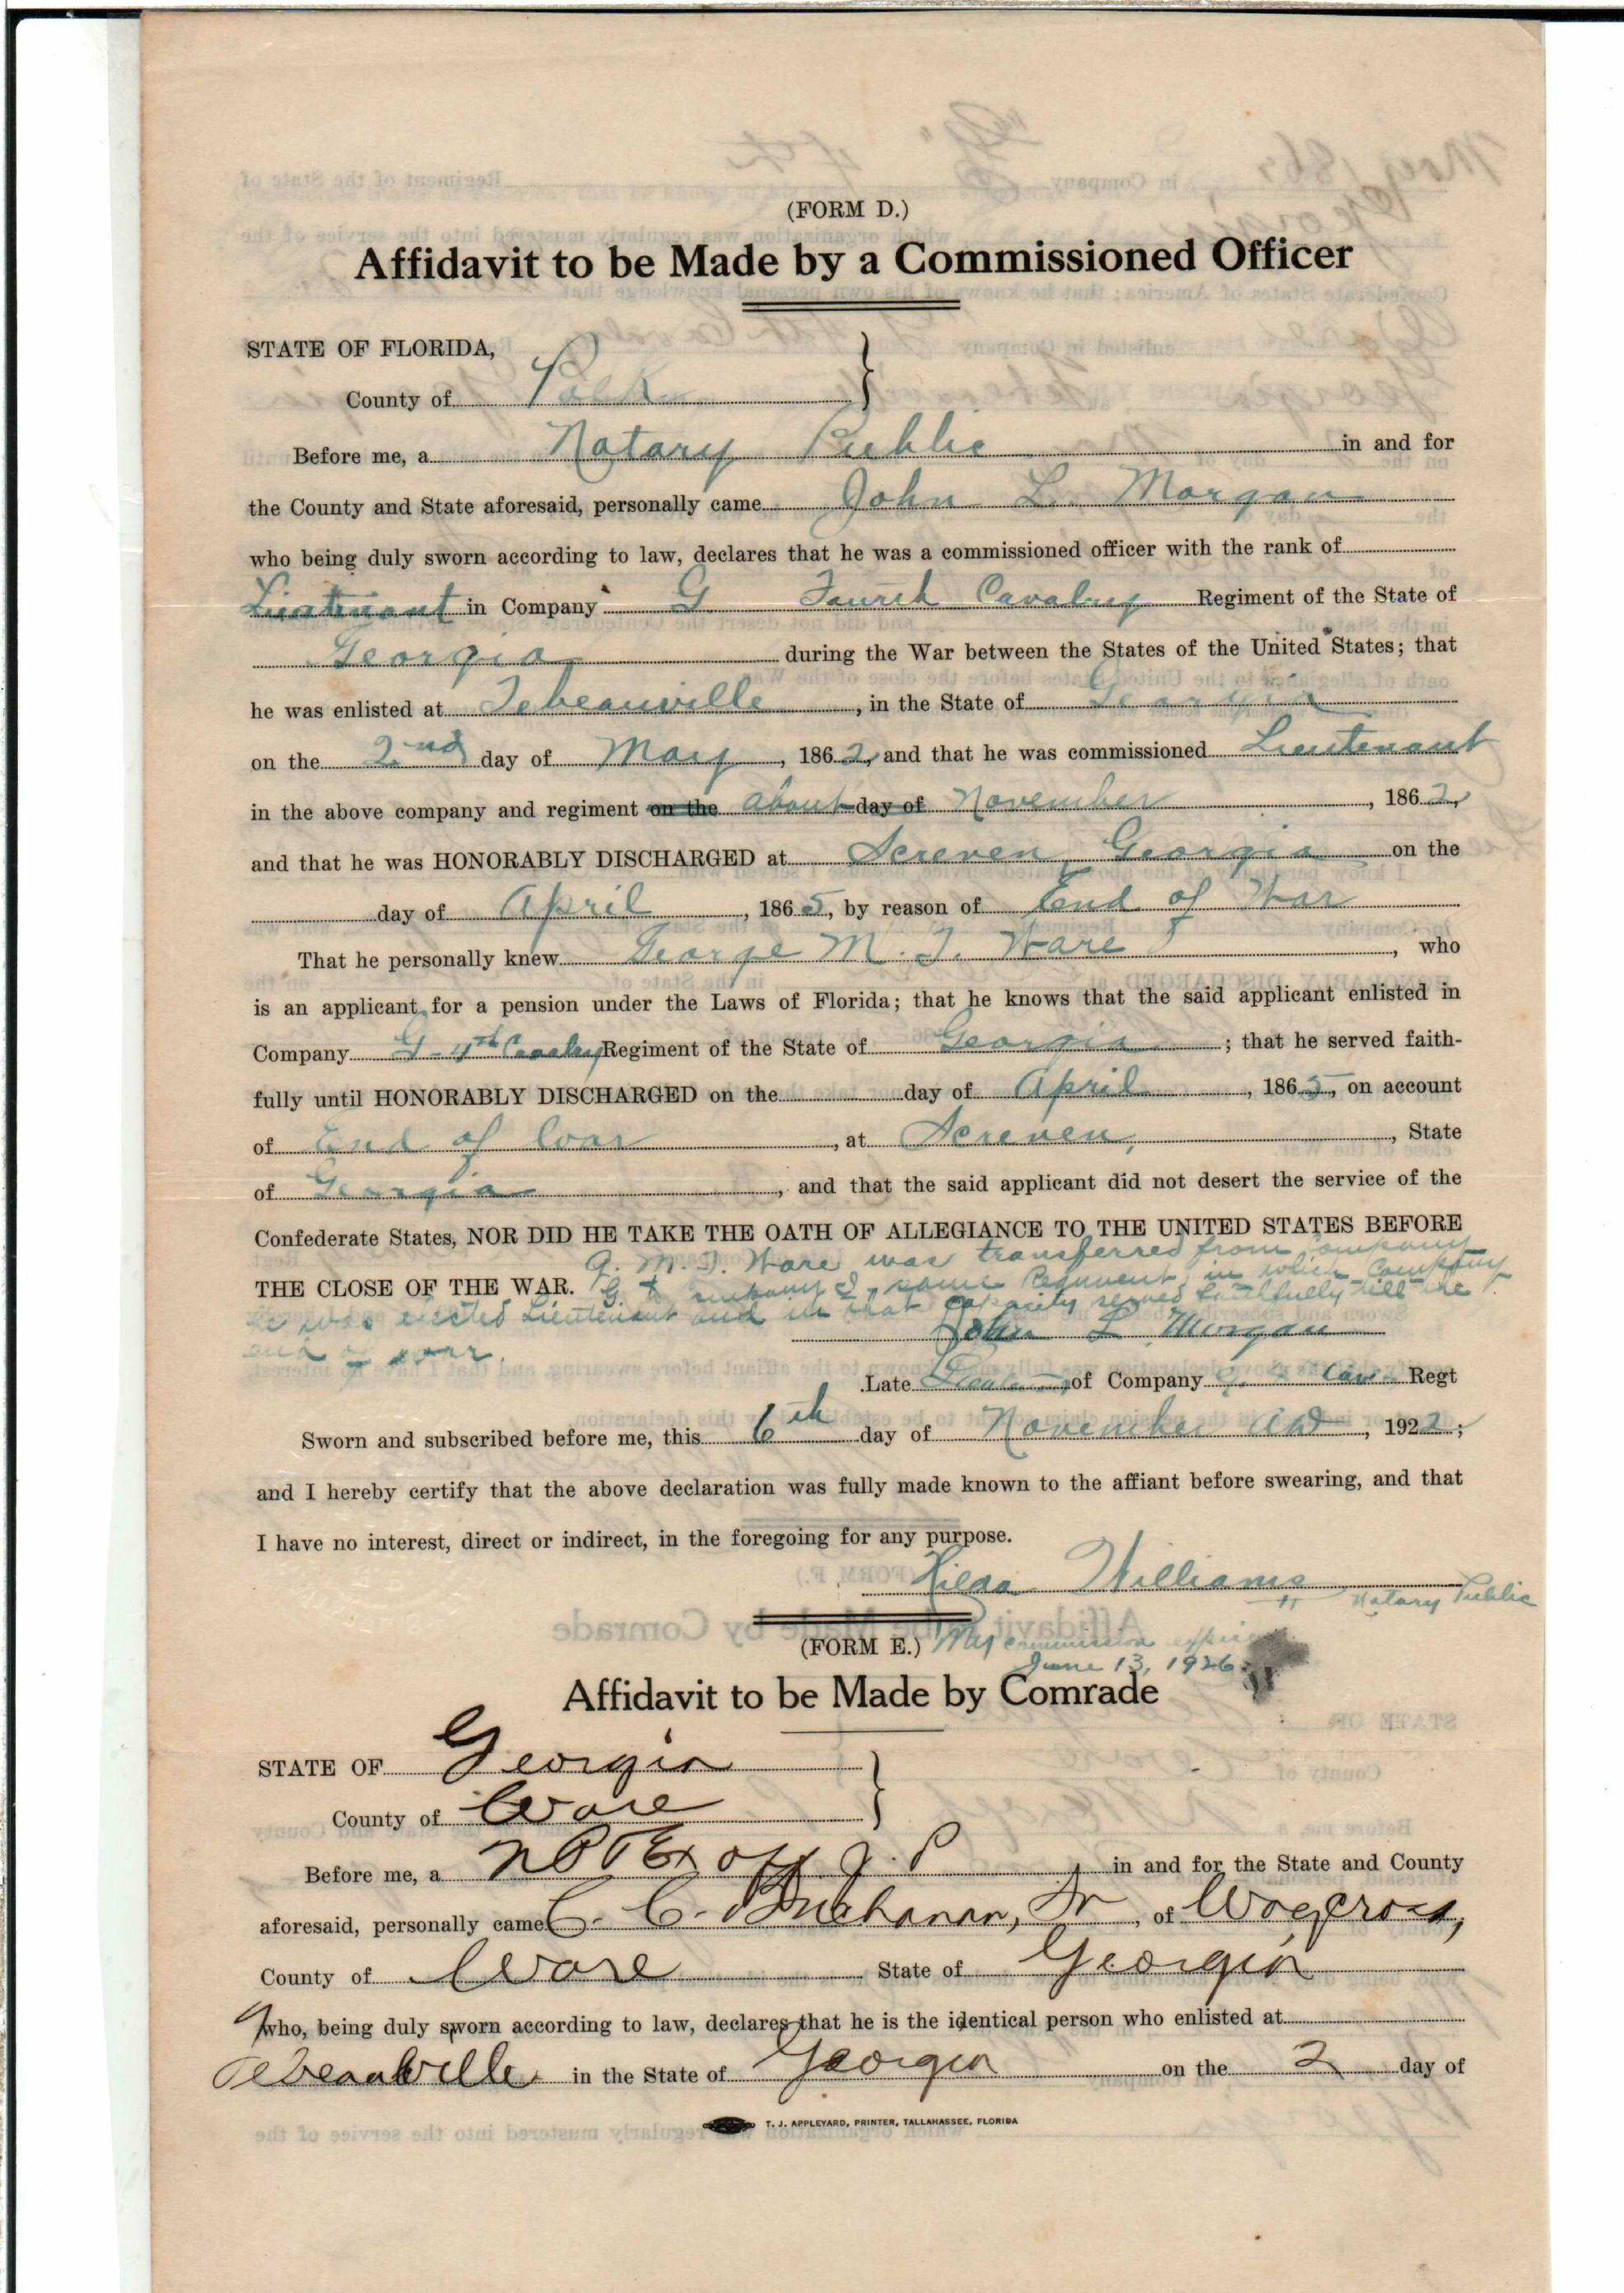 (FORM D.)
Affidavit to be Made by a Commissioned Officer
STATE OF FLORIDA,
County of Polk
Before me, a Notary Public in and for
the County and State aforesaid, personally came John L. Morgan
who being duly sworn according to law, declares that he was a commissioned officer with the rank of
Lieutenant in Company G Fourth Cavalry Regiment of the State of
Georgia during the War between the States of the United States; that
he was enlisted at Tebeauville, in the State of Georgia
on the 2nd day of May, 1862, and that he was commissioned Lieutenant
in the above company and regiment on the about day of November, 1862,
and that he was HONORABLY DISCHARGED at Screven, Georgia on the
day of April, 1865, by reason of End of War
That he personally knew George M. T. Ware, who
is an applicant for a pension under the Laws of Florida; that he knows that the said applicant enlisted in
Company G - 4th Cavalry Regiment of the State of Georgia; that he served faith-
fully until HONORABLY DISCHARGED on the day of April, 1865, on account
of End of War, at Screven, State
of Georgia, and that the said applicant did not desert the service of the
Confederate States, NOR DID HE TAKE THE OATH OF ALLEGIANCE TO THE UNITED STATES BEFORE
THE CLOSE OF THE WAR. G. M. T. Ware was transferred from Company
G to Company I, same Regiment, in which Company
he was elected Lieutenant and in that capacity served faithfully till the
end of war.
John L Morgan
Late Lieutenant of Company G. 4 Cav Regt
Sworn and subscribed before me, this 6th day of November AD, 1922;
and I hereby certify that the above declaration was fully made known to the affiant before swearing, and that
I have no interest, direct or indirect, in the foregoing for any purpose.
Hilda Williams
Notary Public
(FORM E.) My commission expires
June 13, 1926
Affidavit to be Made by Comrade
STATE OF Georgia
County of Ware
Before me, a N P & Ex off J. P in and for the State and County
aforesaid, personally came C. C. Buchanan, Sr, of Waycross,
County of Ware State of Georgia
who, being duly sworn according to law, declares that he is the identical person who enlisted at
Tebeauville in the State of Georgia on the 2 day of
T. J. APPLEYARD, PRINTER, TALLAHASSEE, FLORIDA